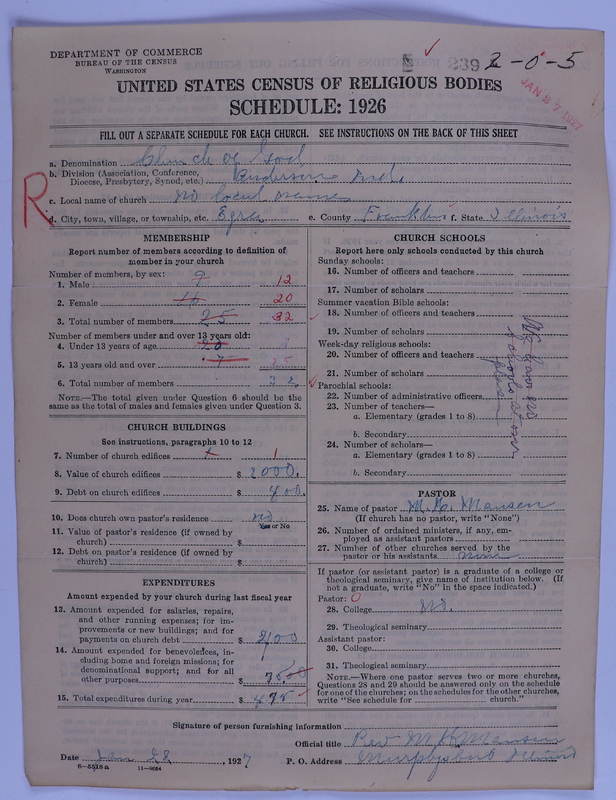 DEPARTMENT OF COMMERCE
BUREAU OF THE CENSUS
WASHINGTON
239 2-0-5
JAN 27 1927
UNITED STATES CENSUS OF RELIGIOUS BODIES
SCHEDULE: 1926
FILL OUT A SEPARATE SCHEDULE FOR EACH CHURCH. SEE INSTRUCTIONS ON THE BACK OF THIS SHEET
R
a. Denomination Church of God
b. Division (Association, Conference, Diocese, Presbytery, Synod, etc.) Anderson Ind.
c. Local name of church no local name
d. City, town, village, or township, etc. e. County Franklin f. State Illinois
MEMBERSHIP
Report number of members according to definition of
member in your church
Number of members, by sex:
1. Male 9 12
2. Female 16 20
3. Total number of members 25 32
Number of members under and over 13 years old:
4. Under 13 years of age
5. 13 years old and over 25
6. Total number of members 32
NOTE.—The total given under Question 6 should be the
same as the total of males and females given under Question 3.
CHURCH BUILDINGS
See instructions, paragraphs 10 to 12
7. Number of church edifices 1
8. Value of church edifices $ 2000.
9. Debt on church edifices $ 400.
10. Does church own pastor's residence no
Yes or No
11. Value of pastor's residence (if owned by
church) $
12. Debt on pastor's residence (if owned by
church) $
EXPENDITURES
Amount expended by your church during last fiscal year
13. Amount expended for salaries, repairs,
and other running expenses; for im-
provements or new buildings; and for
payments on church debt $ 400
14. Amount expended for benevolences, in-
cluding home and foreign missions; for
denominational support; and for all
other purposes $ 75.00
15. Total expenditures during year $ 475
CHURCH SCHOOLS
Report here only schools conducted by this church
Sunday schools:
16. Number of officers and teachers
17. Number of scholars
Summer vacation Bible schools:
18. Number of officers and teachers
19. Number of scholars
Week-day religious schools:
20. Number of officers and teachers
21. Number of scholars
Parochial schools:
22. Number of administrative officers
23. Number of teachers—
a. Elementary (grades 1 to 8)
b. Secondary
24. Number of scholars—
a. Elementary (grades 1 to 8)
b. Secondary
We have no
schools at our
place
PASTOR
25. Name of pastor M. H. Mansen
(If church has no pastor, write "None")
26. Number of ordained ministers, if any, em-
ployed as assistant pastors
27. Number of other churches served by the
pastor or his assistants none
If pastor (or assistant pastor) is a graduate of a college or
theological seminary, give name of institution below. (If
not a graduate, write "No" in the space indicated.)
Pastor: 0
28. College No.
29. Theological seminary
Assistant pastor:
30. College
31. Theological seminary
NOTE.—Where one pastor serves two or more churches,
Questions 28 and 29 should be answered only on the schedule
for one of the churches; on the schedules for the other churches,
write "See schedule for church."
Signature of person furnishing information
Official title Rev M H Mansen
Date Jan 22, 1927 P. O. Address Murphysboro Illinois
11-9864